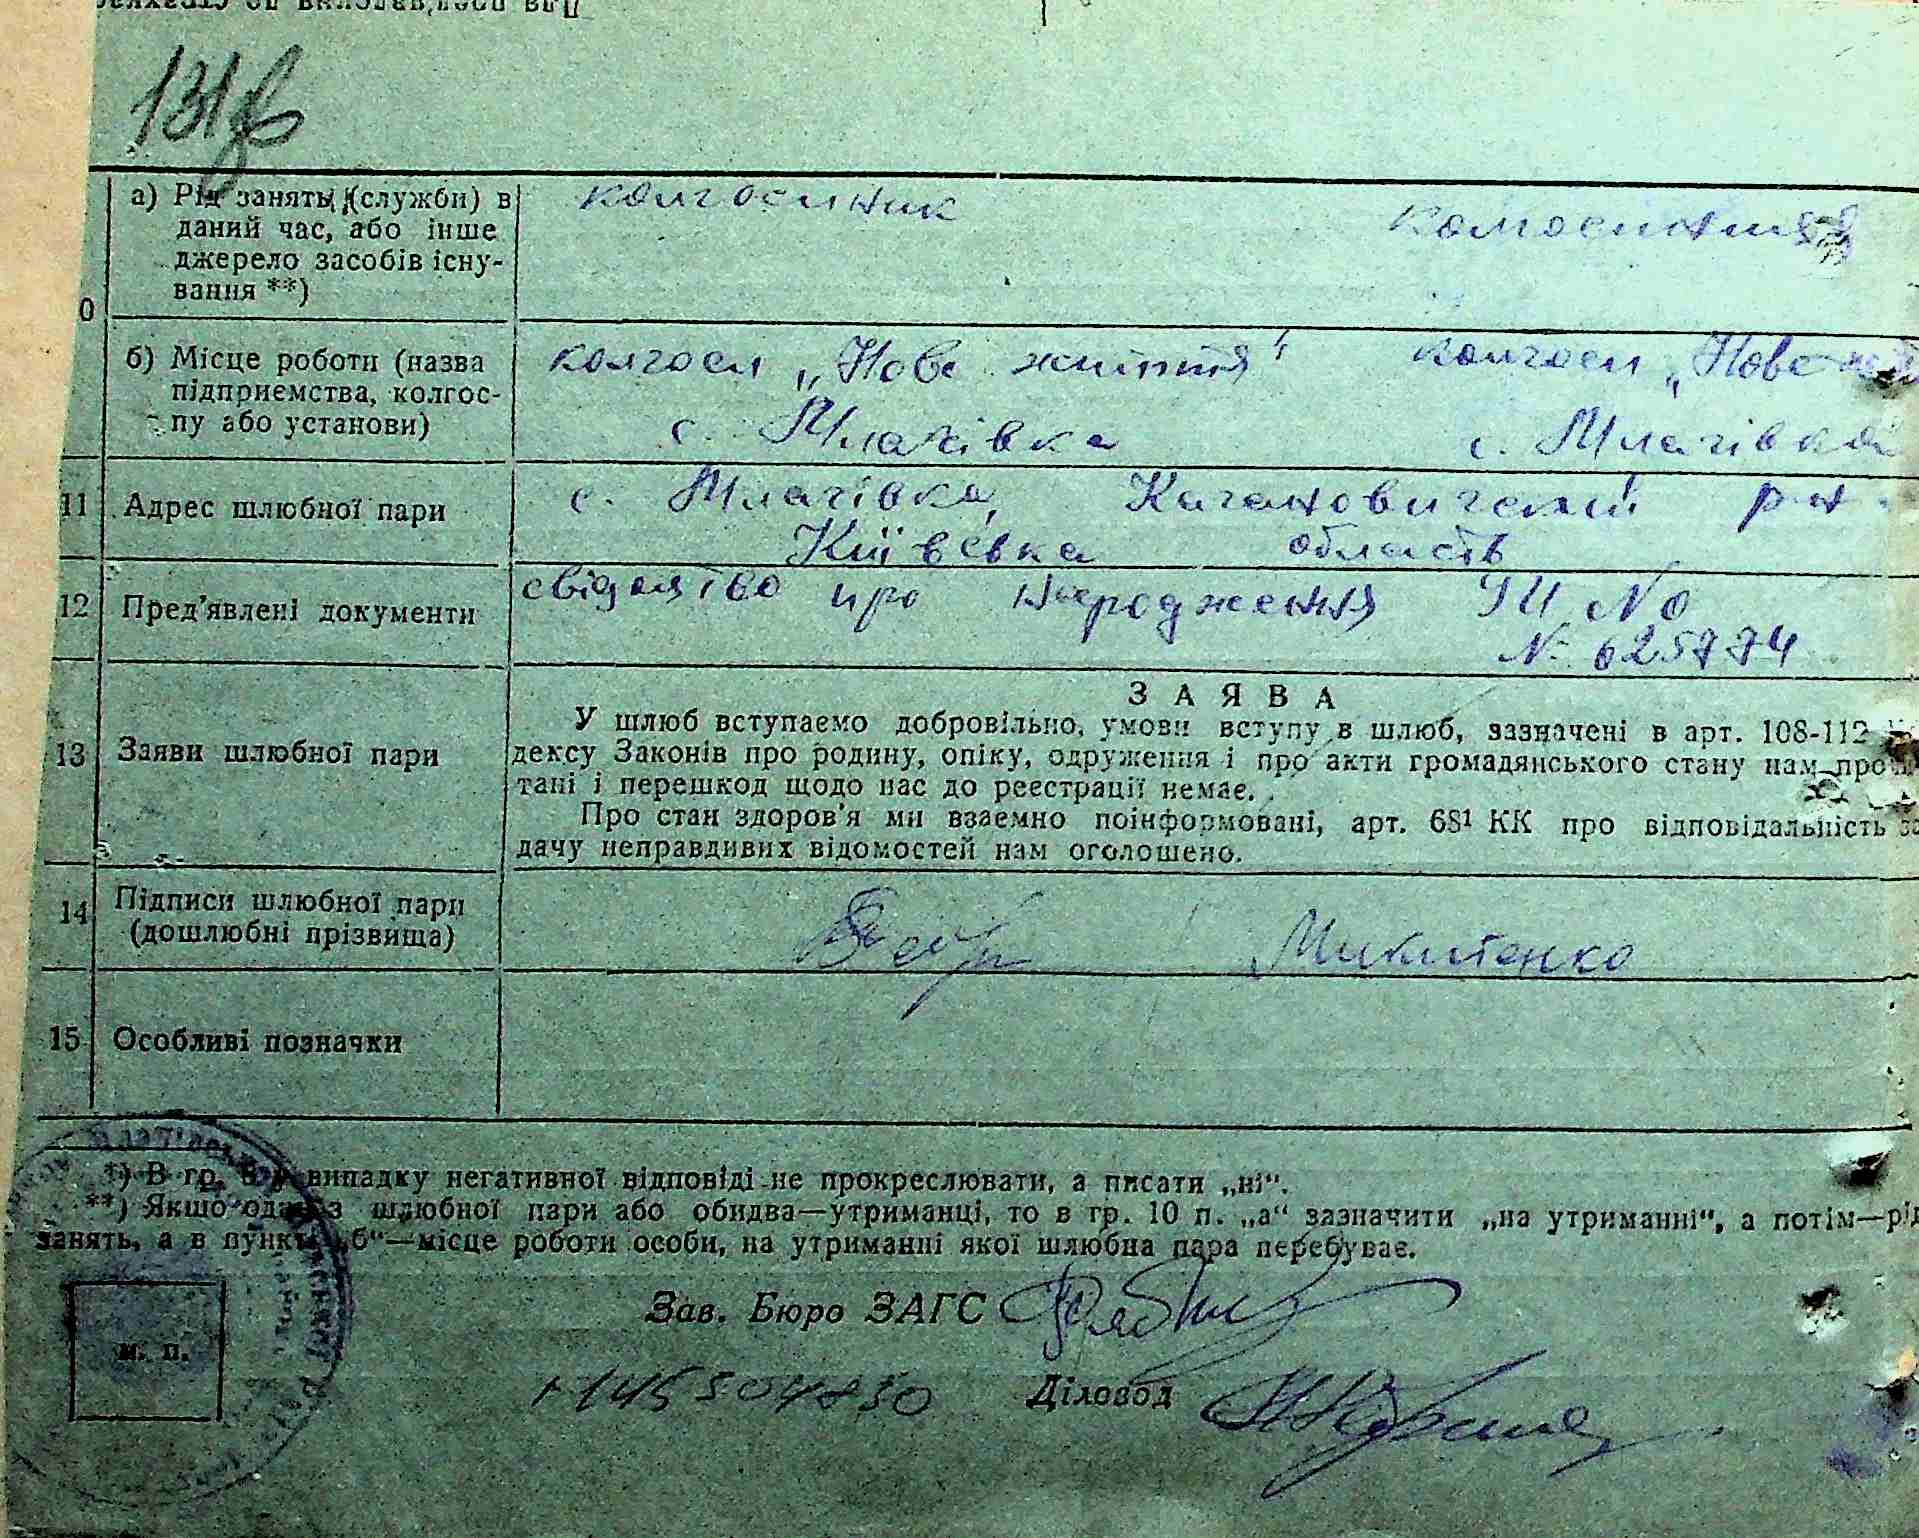 131
а) Рід занять (служби) в
даний час, або інше
джерело засобів існу-
вання **)
колгоспник
0
б) Місце роботи (назва
підприємства, колгос-
пу або установи)
колгосп „Нове життя“ колгосп „Нове
с. Млачівка с. Млачівка
11 Адрес шлюбної пари
с. Млачівка, Кагановичский р-н.
область
12 Пред'явлені документи
свідоцтво про народження
№ 625774
13 Заяви шлюбної пари
ЗАЯВА
У шлюб вступаємо добровільно, умови вступу в шлюб, зазначені в арт. 108-112
дексу Законів про родину, опіку, одруження і про акти громадянського стану нам про
тані і перешкод щодо нас до реєстрації немає.
Про стан здоров'я ми взаємно поінформовані, арт. 68¹ КК про відповідальність за
дачу неправдивих відомостей нам оголошено.
14 Підписи шлюбної пари
(дошлюбні прізвища)
Микитенко
15 Особливі позначки
*) В гр. випадку негативної відповіді не прокреслювати, а писати „ні“.
**) Якщо один з шлюбної пари або обидва—утриманці, то в гр. 10 п. „а“ зазначити „на утриманні“, а потім—рід
занять, а в пункті „б“—місце роботи особи, на утриманні якої шлюбна пара перебуває.
Зав. Бюро ЗАГС
м. п.
Діловод